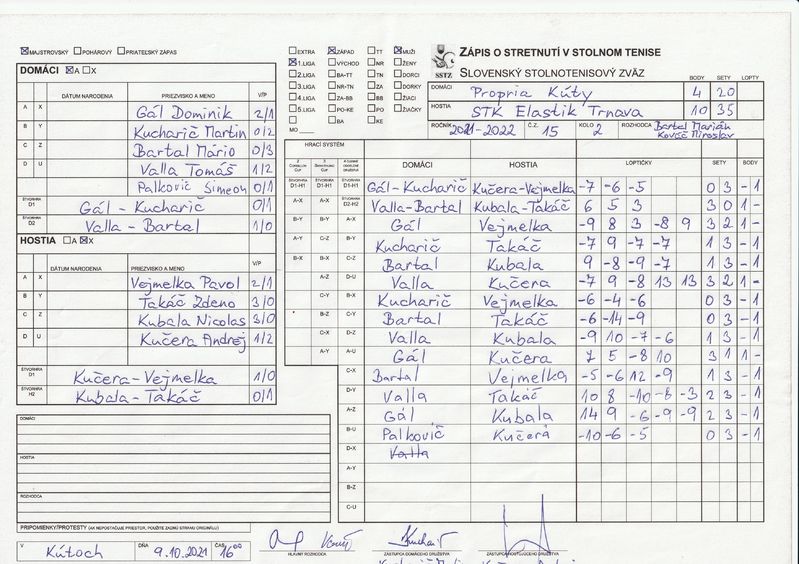 MAJSTROVSKÝ POHÁROVÝ PRIATEĽSKÝ ZÁPAS
DOMÁCI A X
DÁTUM NARODENIA PRIEZVISKO A MENO V/P
A X Gál Dominik 2/1
B Y Kucharič Martin 0/2
C Z Bartal Mário 0/3
D U Valla Tomáš 1/2
Palkovič Simeon 0/1
ŠTVORHRA D1 Gál - Kucharič 0/1
ŠTVORHRA D2 Valla - Bartal 1/0
HOSTIA A X
DÁTUM NARODENIA PRIEZVISKO A MENO V/P
A X Vejmelka Pavol 2/1
B Y Takáč Zdeno 3/0
C Z Kubala Nicolas 3/0
D U Kučera Andrej 1/2
ŠTVORHRA Kučera-Vejmelka 1/0
ŠTVORHRA H2 Kubala-Takáč 0/1
DOMÁCI
HOSTIA
ROZHODCA
PRIPOMIENKY/PROTESTY (AK NEPOSTAČUJE PRIESTOR, POUŽITE ZADNÚ STRANU ORIGINÁLU)
V Kútoch DŇA 9.10.2021 ČAS 16 00
EXTRA ZÁPAD TT MUŽI
1.LIGA VÝCHOD NR ŽENY
2.LIGA BA-TT TN DORCI
3.LIGA NR-TN ZA DORKY
4.LIGA ZA-BB BB ŽIACI
5.LIGA PO-KE PO ŽIAČKY
MO BA KE
SSTZ
ZÁPIS O STRETNUTÍ V STOLNOM TENISE
SLOVENSKÝ STOLNOTENISOVÝ ZVÄZ
BODY SETY LOPTY
DOMÁCI Propria Kúty 4 20
HOSTIA STK Elastik Trnava 10 35
ROČNÍK 2021-2022 Č.Z. 15 KOLO 2 ROZHODCA Bartal Marián
Kováč Miroslav
HRACÍ SYSTÉM
DOMÁCI HOSTIA LOPTIČKY SETY BODY
ŠTVORHRA D1-H1 ŠTVORHRA D1-H1 D1-H1 Gál-Kucharič Kučera-Vejmelka -7 -6 -5 0 3 - 1
A-X A-X ŠTVORHRA D2-H2 Valla-Bartal Kubala-Takáč 6 5 3 3 0 1 -
B-Y B-Y A-X Gál Vejmelka -9 8 3 -8 9 3 2 1 -
A-Y C-Z B-Y Kucharič Takáč -7 9 -7 -7 1 3 - 1
B-X B-X C-Z Bartal Kubala 9 -8 -9 -7 1 3 - 1
A-Z D-U Valla Kučera -7 9 -8 13 13 3 2 1 -
C-Y B-X Kucharič Vejmelka -6 -4 -6 0 3 - 1
B-Z C-Y Bartal Takáč -6 -14 -9 0 3 - 1
C-X D-Z Valla Kubala -9 10 -7 -6 1 3 - 1
A-Y A-U Gál Kučera 7 5 -8 10 3 1 1 -
C-X Bartal Vejmelka -5 -6 12 -9 1 3 - 1
D-Y Valla Takáč 10 8 -10 -8 -3 2 3 - 1
A-Z Gál Kubala 14 9 -6 -9 -9 2 3 - 1
B-U Palkovič Kučera -10 -6 -5 0 3 - 1
D-X Valla
A-Y
B-Z
C-U
HLAVNÝ ROZHODCA
ZÁSTUPCA DOMÁCEHO DRUŽSTVA